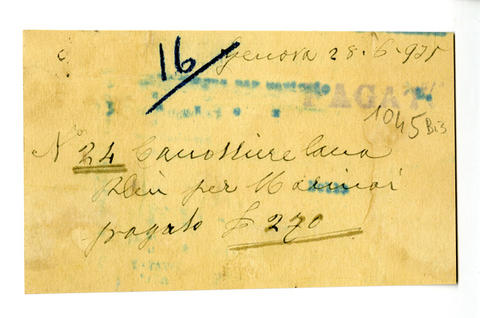 16
Genova 28-6-935
PAGAT
1045 Bis
N° 24 Canottiere lana
Bleu per Marinai
pagato £ 270